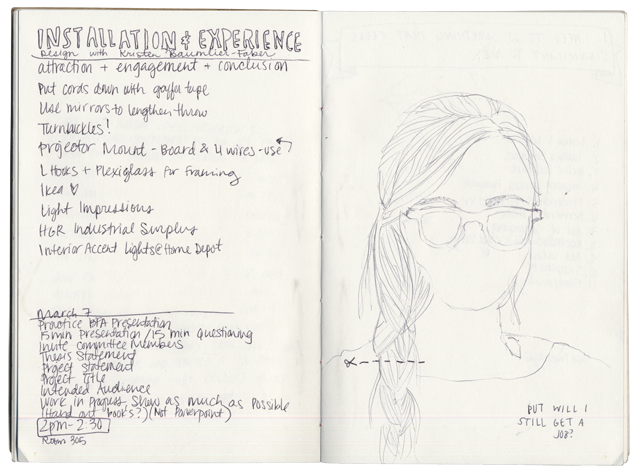 INSTALLATION & EXPERIENCE
Design with Kristen Baumlier-Faber
attraction + engagement + conclusion
Put cords down with gaffer tape
Use mirrors to lengthen throw
Turnbuckles!
projector Mount - Board & 4 wires - use
L Hooks + Plexiglass for Framing
Ikea ♡
Light Impressions
HGR Industrial Surplus
Interior Accent Lights @ Home Depot
March 7
Practice BFA Presentation
15 min Presentation / 15 min questioning
Invite committee Members
Thesis Statement
Project Statement
Project Title
Intended Audience
Work in progress, show as much as possible
(Hand out "book's?) (Not Powerpoint)
2pm - 2:30
Room 305
BUT WILL I
STILL GET A
JOB?